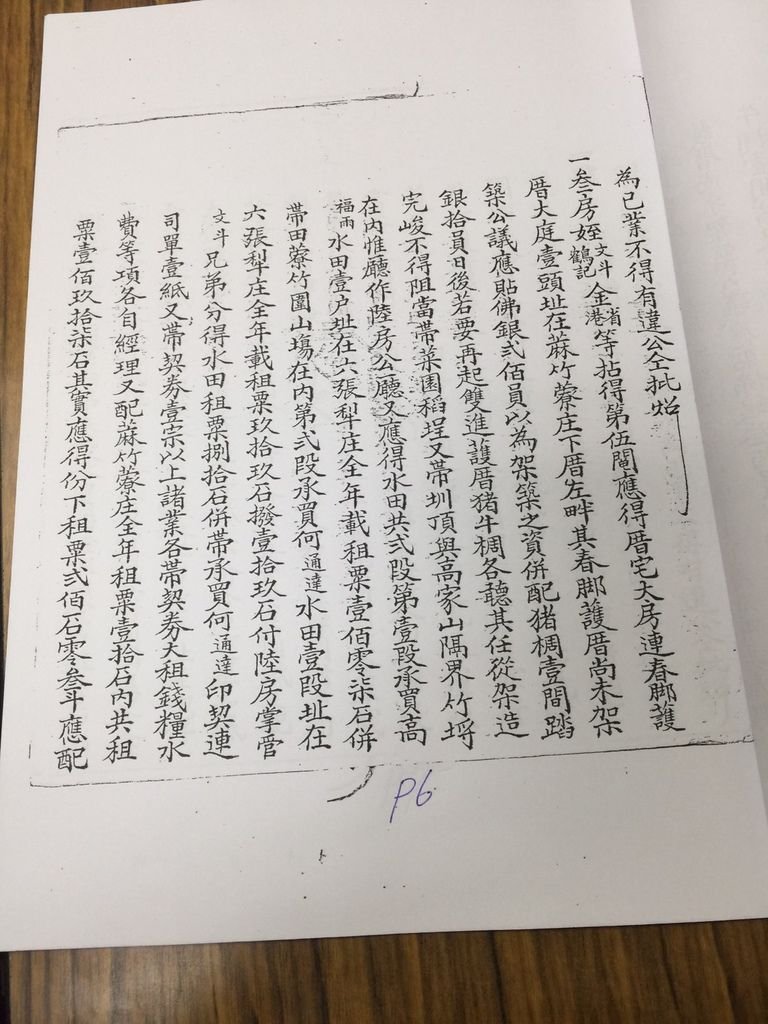 為己業不得有違公仝批炤
一叁房姪文斗鶴記金省港等拈得第伍鬮應得厝宅大房連春脚護
厝大庭壹頭址在蔴竹藔庄下厝左畔其春脚護厝尚未架
築公議應貼佛銀弍佰員以為架築之資併配猪椆壹間踏
銀拾員日後若要再起雙進護厝猪牛椆各聽其任從架造
完峻不得阻當帶菜園稻埕又帶圳頂與高家山隔界竹埒
在內惟廳作陸房公廳又應得水田共弍段第壹段承買高
福雨水田壹户址在六張犁庄全年載租粟壹佰零柒石併
帶田藔竹圍山塲在內第弍段承買何通達水田壹段址在
六張犁庄全年載租粟玖拾玖石撥壹拾玖石付陸房掌管
文斗兄弟分得水田租粟捌拾石併帶承買何通達印契連
司單壹紙又帶契券壹宗以上諸業各帶契券大租錢糧水
費等項各自經理又配蔴竹藔庄全年租粟壹拾石內共租
粟壹佰玖拾柒石其實應得份下租粟弍佰石零叁斗應配
P6